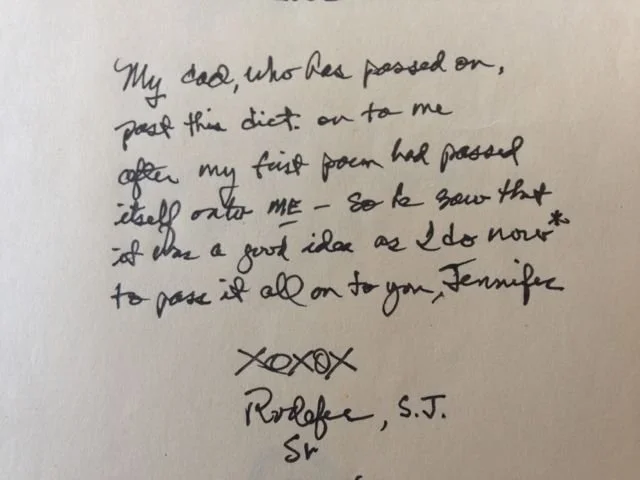 My dad, who has passed on,
past this dict. on to me
after my first poem had passed
itself onto ME – So he saw that
it was a good idea as I do now*
to pass it all on to you, Jennifer
XOXOX
Rodefer, S.J.
Sr